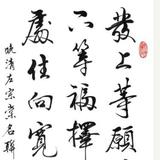 發上等願
下等福擇
處住向寬
晚清左宗棠名聯